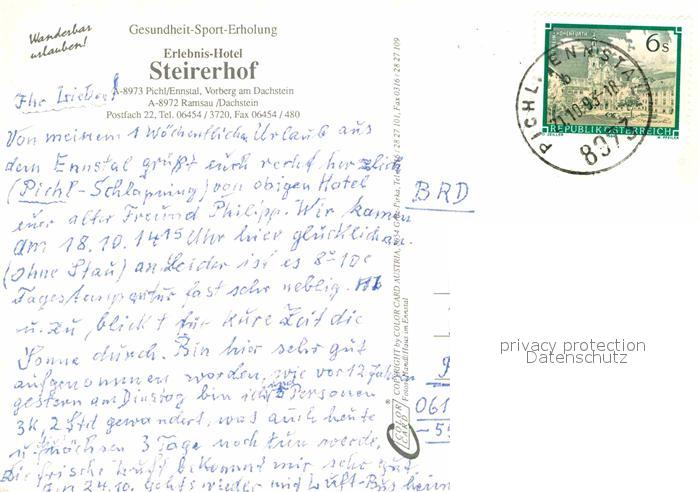 Wanderbar
urlauben!
Gesundheit-Sport-Erholung
Erlebnis-Hotel
Steirerhof
A-8973 Pichl/Ennstal, Vorberg am Dachstein
A-8972 Ramsau /Dachstein
Postfach 22, Tel. 06454 / 3720, Fax 06454 / 480
Ihr Lieben!
Von meinem 1 Wöchentliche Urlaub aus
dem Ennstal grüßt euch recht herzlich
(Pichl-Schlapning) von obigen Hotel
euer alter Freund Philipp. Wir kamen
am 18.10. 14 15 Uhr hier glücklich an.
(ohne Stau) an Leider ist es 8°-10°
Tagestemperatur fast sehr neblig. Ab
u. zu, blickt für kurze Zeit die
Sonne durch. Bin hier sehr gut
aufgenommen worden, wie vor 12 Jahren
gestern am Dienstag bin ich und 5 Personen
3k, 2 Std gewandert, was auch heute
u. nächsten 3 Tage noch tun werde.
Die frische Luft bekommt mir sehr gut.
24.10. gehts wieder mit Luft-Bus heim
BRD
061
-5
COPYRIGHT by COLOR CARD AUSTRIA, Fax 0316 / 28 27 109
COLOR CARD
6 s
REPUBLIK ÖSTERREICH
PICHL, ENNSTAL
8973
privacy protection
Datenschutz